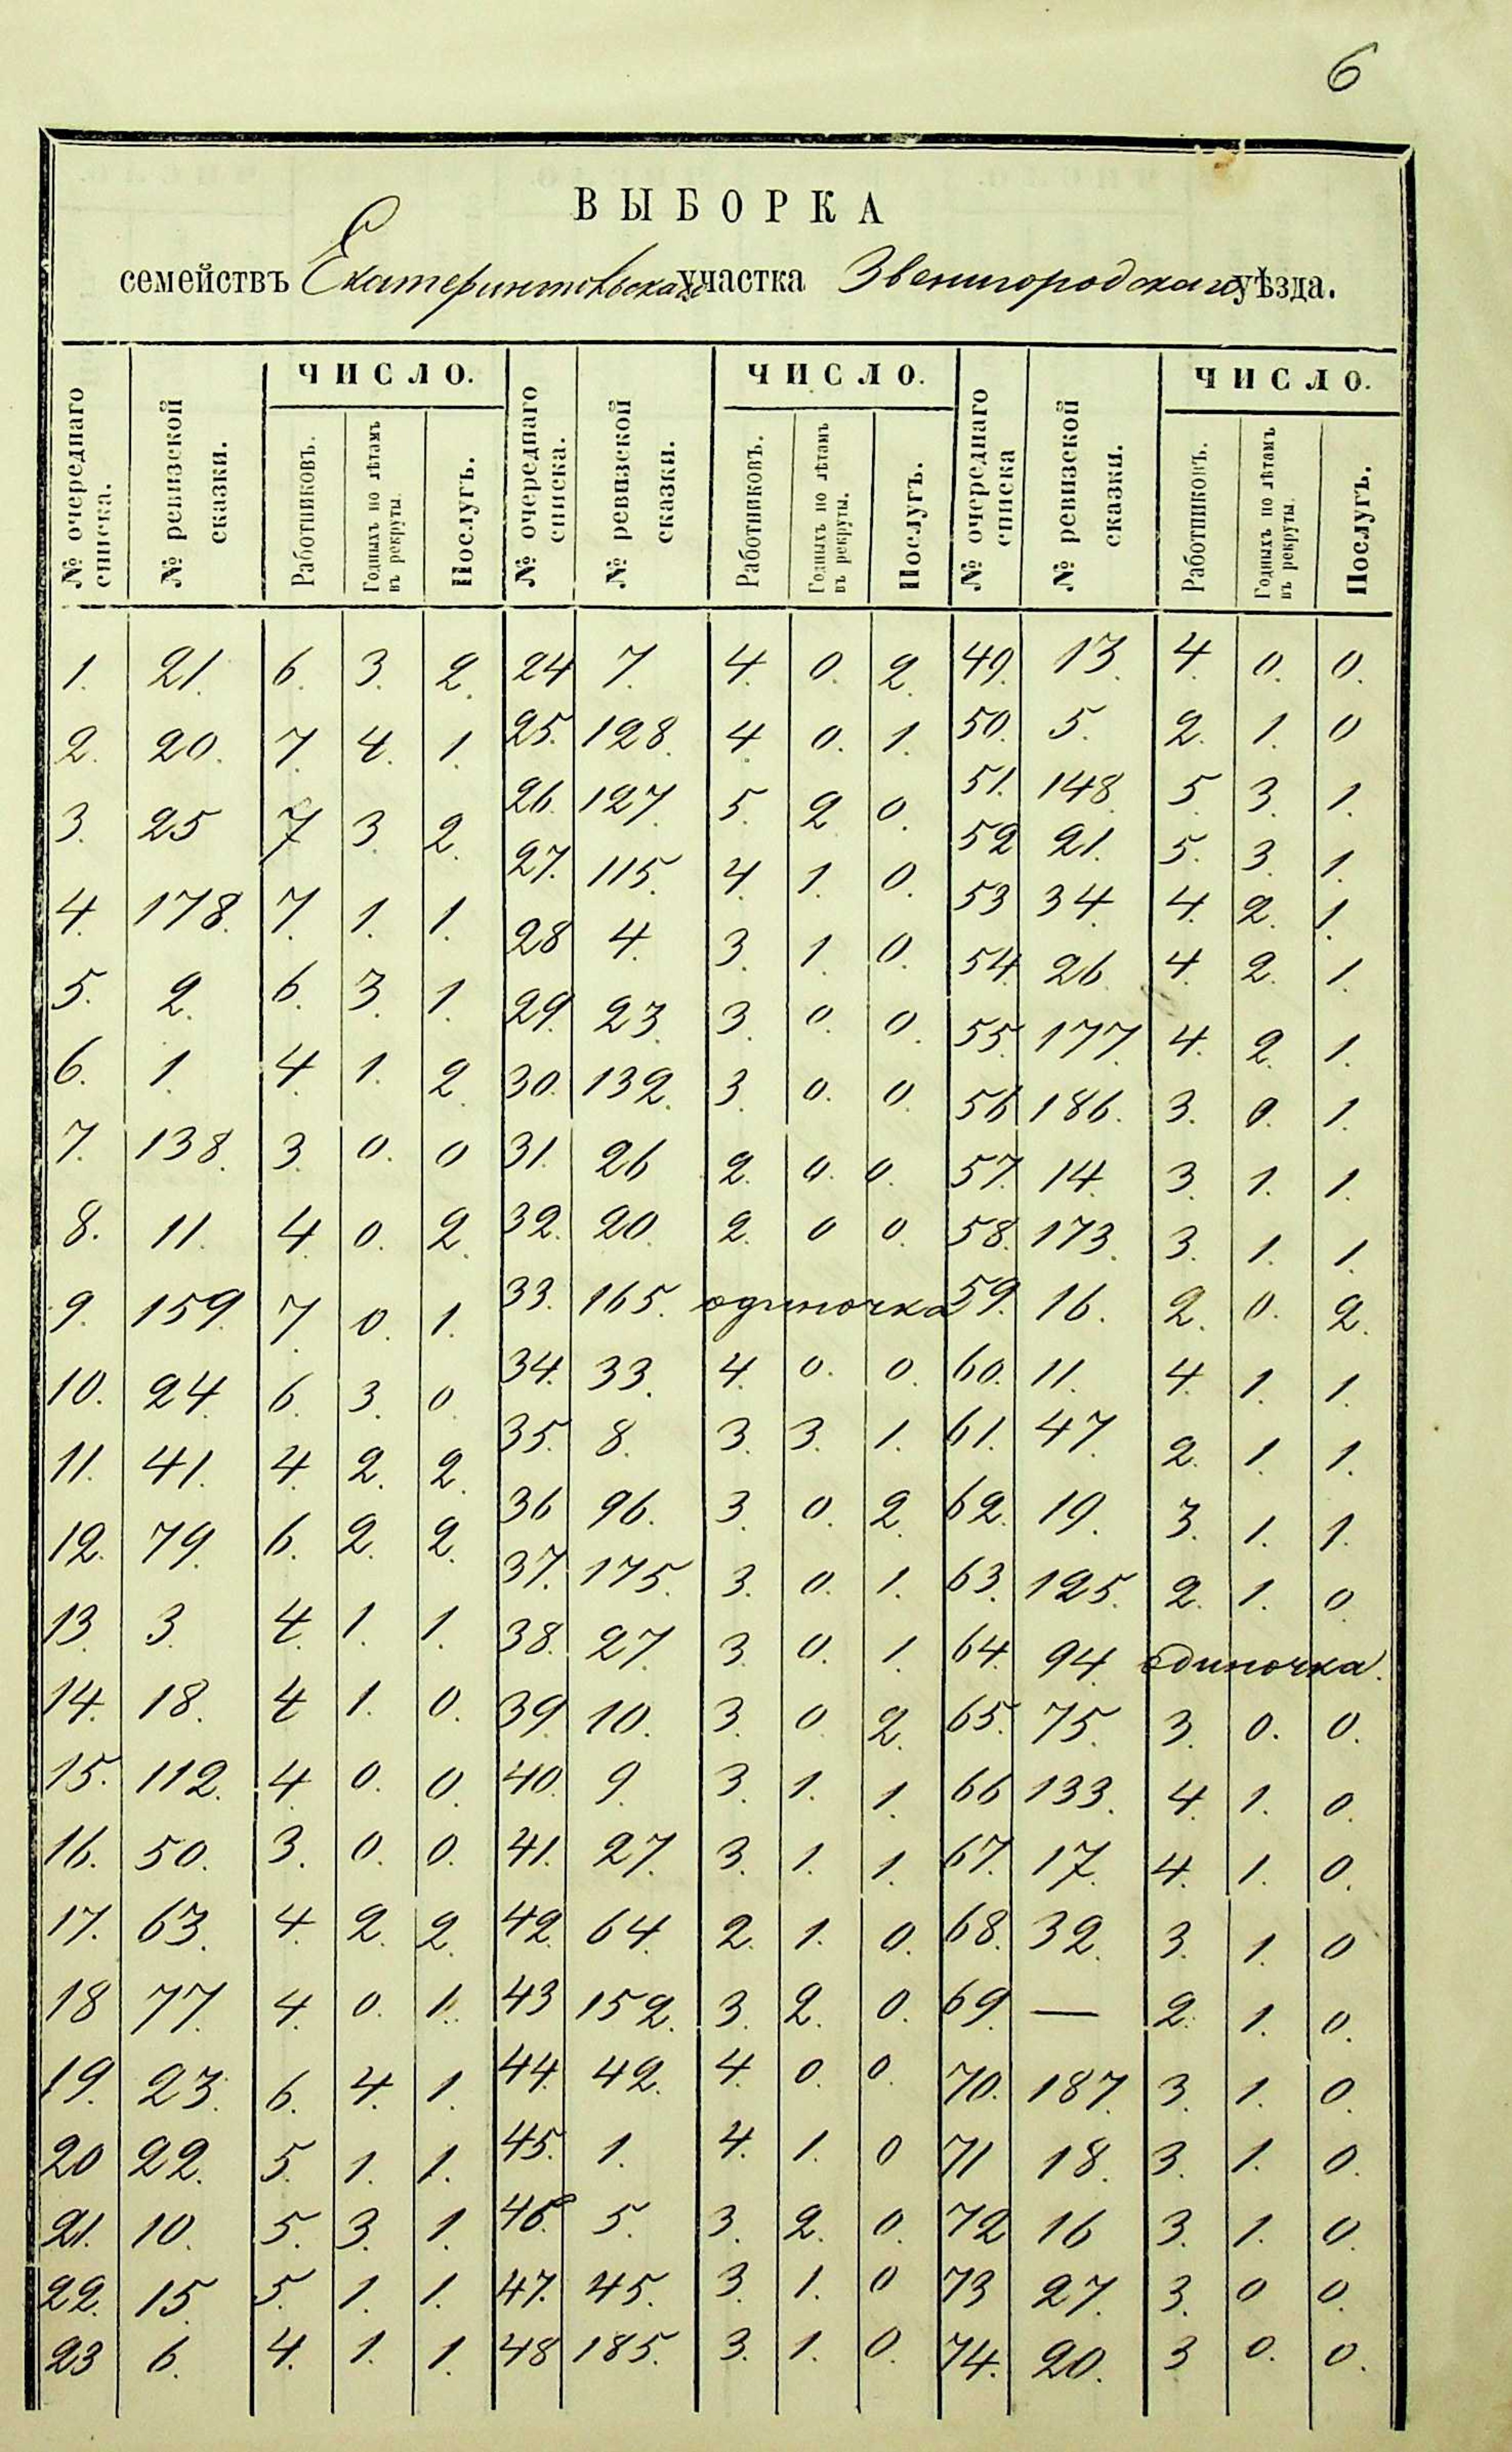 6
ВЫБОРКА
семействъ Екатериновскаго участка Звенигородскаго уѣзда.
№ очереднаго списка. № ревизской сказки. ЧИСЛО. Работниковъ. Годныхъ по лѣтамъ въ рекруты. Послугъ. № очереднаго списка. № ревизской сказки. ЧИСЛО. Работниковъ. Годныхъ по лѣтамъ въ рекруты. Послугъ. № очереднаго списка № ревизской сказки. ЧИСЛО. Работниковъ. Годныхъ по лѣтамъ въ рекруты. Послугъ.
1. 21. 6. 3. 2.
2. 20. 7. 4. 1.
3. 25 7 3. 2.
4. 178. 7. 1. 1.
5. 2. 6. 3. 1.
6. 1. 4. 1. 2.
7. 138. 3. 0. 0
8. 11. 4. 0. 2.
9. 159. 7. 0. 1.
10. 24. 6. 3. 0.
11. 41. 4. 2. 2.
12. 79. 6. 2. 2.
13. 3. 4. 1. 1.
14. 18. 4 1. 0.
15. 112. 4. 0. 0.
16. 50. 3. 0. 0.
17. 63. 4. 2. 2.
18 77. 4. 0. 1.
19. 23. 6. 4. 1.
20 22. 5. 1. 1.
21. 10. 5. 3. 1.
22. 15. 5. 1. 1.
23 6. 4. 1. 1.
24 7. 4. 0. 2.
25. 128. 4. 0. 1.
26. 127. 5. 2 0.
27. 115. 4. 1. 0.
28 4. 3. 1. 0.
29. 23. 3. 0. 0.
30. 132. 3. 0. 0.
31. 26 2. 0. 0.
32. 20. 2. 0 0.
33. 165. одиночка
34. 33. 4. 0. 0.
35. 8. 3. 3. 1.
36 96. 3. 0. 2.
37. 175. 3. 0. 1.
38. 27. 3. 0. 1.
39. 10. 3. 0. 2.
40. 9. 3. 1. 1.
41. 27. 3. 1. 1.
42. 64. 2. 1. 0.
43 152. 3. 2. 0.
44. 42. 4. 0. 0.
45. 1. 4. 1. 0
46. 5. 3. 2. 0.
47. 45. 3. 1. 0
48 185. 3. 1. 0.
49. 13. 4. 0. 0.
50. 5. 2. 1. 0
51. 148. 5. 3. 1.
52 21. 5. 3. 1.
53 34. 4. 2. 1.
54. 26 4. 2. 1.
55. 177. 4. 2. 1.
56 186. 3. 0. 1.
57. 14. 3. 1. 1.
58. 173. 3. 1. 1.
59. 16. 2. 0. 2.
60. 11. 4. 1. 1.
61. 47. 2. 1. 1.
62. 19. 3. 1. 1.
63. 125. 2. 1. 0.
64. 94. одиночка.
65. 75. 3. 0. 0.
66 133. 4. 1. 0.
67. 17. 4. 1. 0.
68. 32. 3. 1. 0
69. — 2. 1. 0.
70. 187. 3. 1. 0.
71 18. 3. 1. 0.
72 16 3. 1. 0.
73 27. 3. 0 0.
74. 20. 3 0. 0.